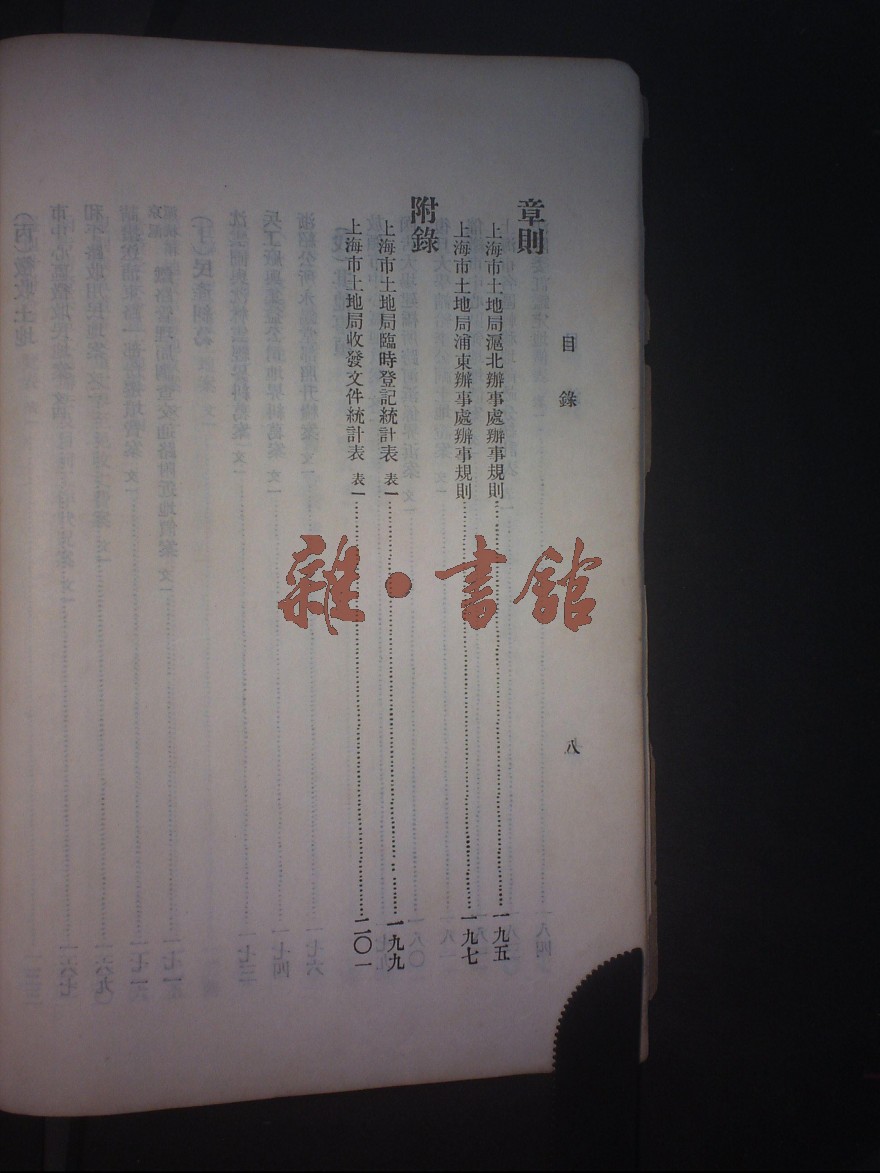 目錄
八
章則
上海市土地局滬北辦事處辦事規則……一九五
上海市土地局浦東辦事處辦事規則……一九七
附錄
上海市土地局臨時登記統計表 表一……一九九
上海市土地局收發文件統計表 表一……二〇一
雜•書館